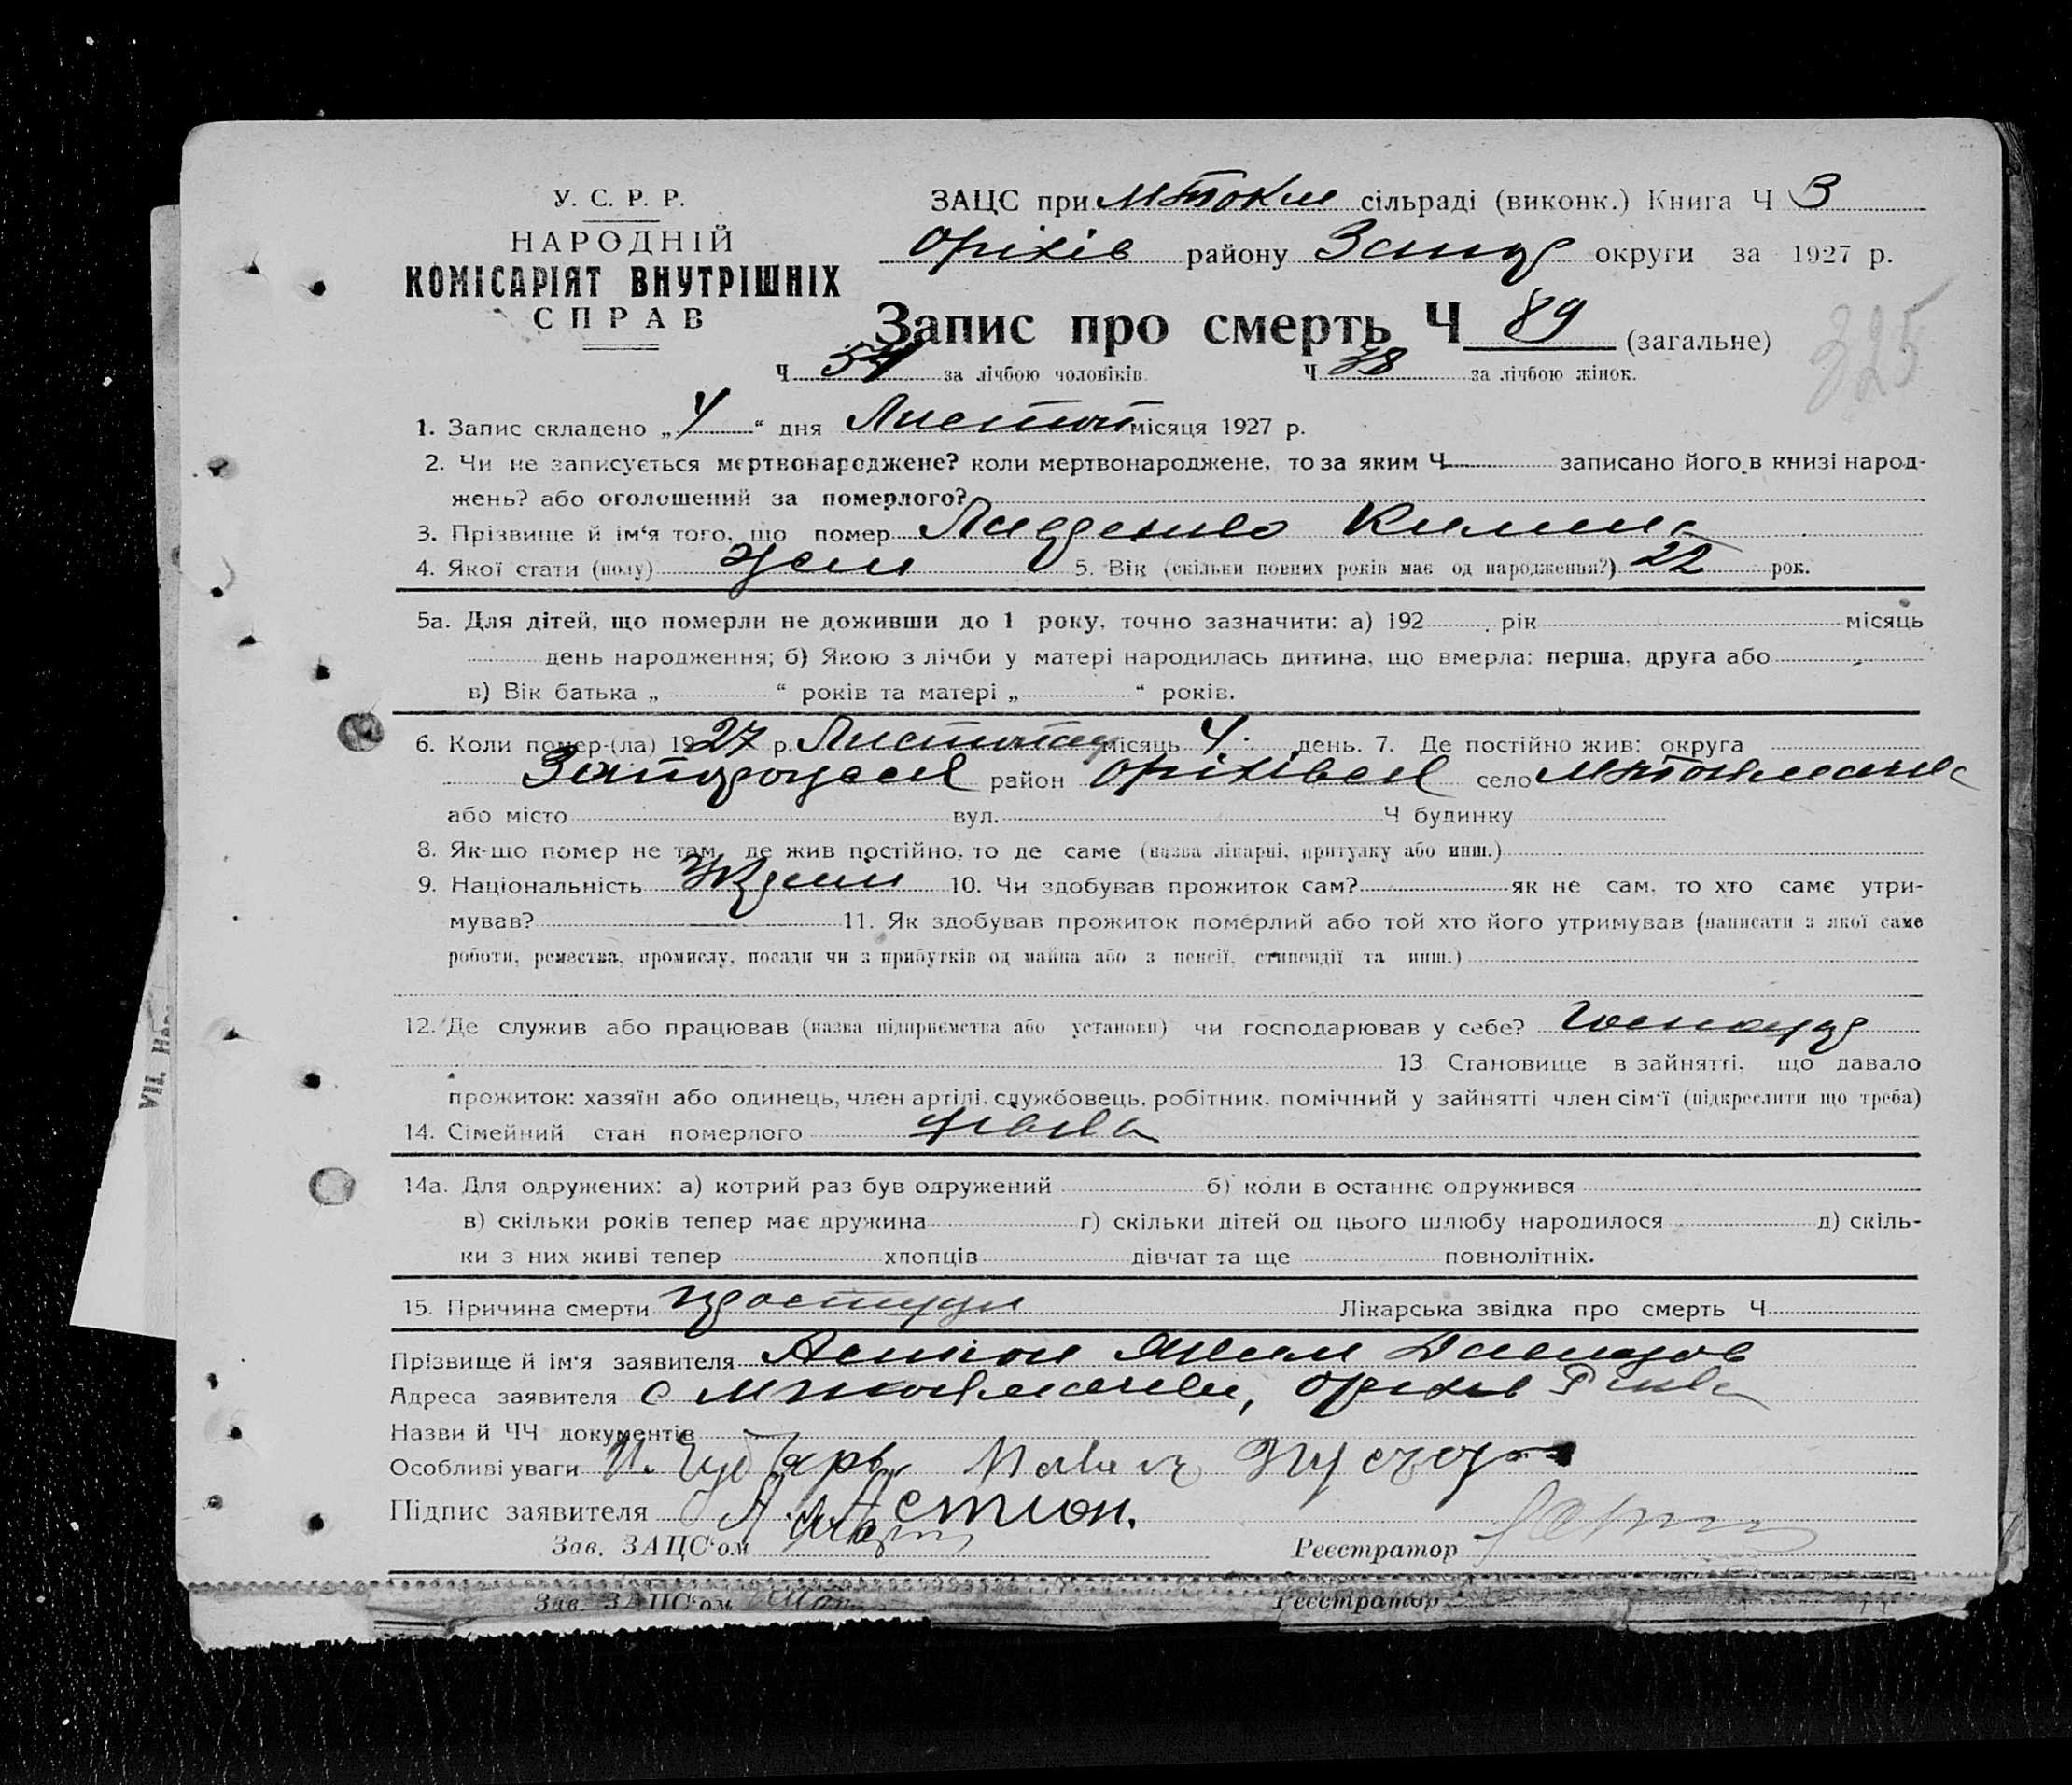 У. С. Р. Р.
НАРОДНІЙ
КОМІСАРІЯТ ВНУТРІШНІХ
СПРАВ
ЗАЦС при МТокм сільраді (виконк.) Книга Ч 3
Оріхів району Запор округи за 1927 р.
Запис про смерть Ч 89 (загальне)
325
Ч за лічбою чоловіків. Ч 38 за лічбою жінок.
1. Запис складено „4“ дня Листоп місяця 1927 р.
2. Чи не записується мертвонароджене? коли мертвонароджене, то за яким Ч записано його в книзі народ-
жень? або оголошений за померлого?
3. Прізвище й ім‘я того, що помер Килина
4. Якої стати (полу) жен 5. Вік (скільки повних років має од народження?) 22 рок.
5а. Для дітей, що померли не доживши до 1 року, точно зазначити: а) 192 рік місяць
день народження; б) Якою з лічби у матері народилась дитина, що вмерла: перша, друга або
в) Вік батька „ “ років та матері „ “ років.
6. Коли помер-(ла) 1927 р. Листопад місяць 4 день. 7. Де постійно жив: округа
Запорожск район Оріхівск село МТокмачка
або місто вул. Ч будинку
8. Як-що помер не там, де жив постійно, то де саме (назва лікарні, притулку або инш.)
9. Національність 10. Чи здобував прожиток сам? як не сам, то хто саме утри-
мував? 11. Як здобував прожиток померлий або той хто його утримував (написати з якої саме
роботи, ремества, промислу, посади чи з прибутків од майна або з пенсії, стипендії та инш.)
12. Де служив або працював (назва підприємства або установи) чи господарював у себе? Господар
13 Становище в зайнятті, що давало
прожиток: хазяїн або одинець, член артілі, службовець, робітник, помічний у зайнятті член сім‘ї (підкреслити що треба)
14. Сімейний стан померлого дівка
14а. Для одружених: а) котрий раз був одружений б) коли в останнє одружився
в) скільки років тепер має дружина г) скільки дітей од цього шлюбу народилося д) скіль-
ки з них живі тепер хлопців дівчат та ще повнолітніх.
15. Причина смерти простуди Лікарська звідка про смерть Ч
Прізвище й ім‘я заявителя Аким Давидов
Адреса заявителя с МТокмачки, Оріхів
Назви й ЧЧ документів
Особливі уваги И. Чубарь
Підпис заявителя
Зав. ЗАЦС‘ом Реєстратор
Зав. ЗАЦС‘ом Реєстратор
VII. На